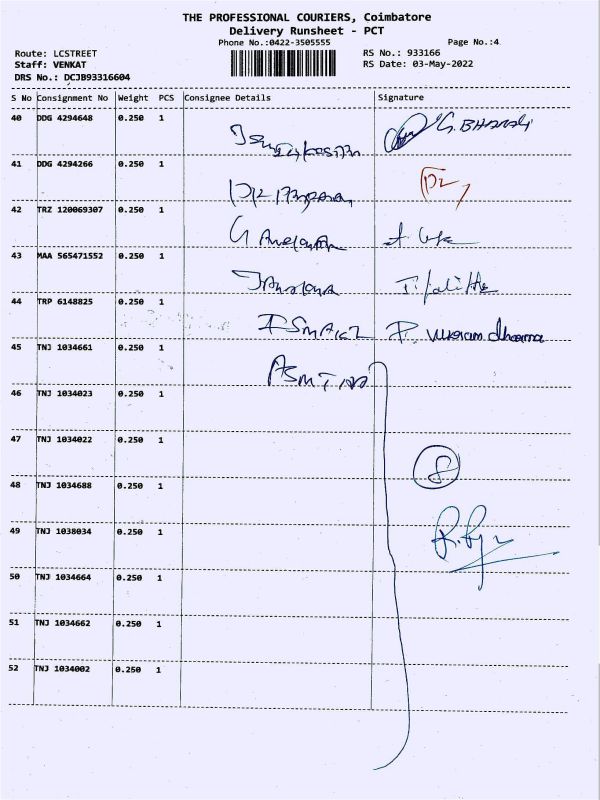 THE PROFESSIONAL COURIERS, Coimbatore
Delivery Runsheet - PCT
Phone No.:0422-3505555 Page No.:4
Route: LCSTREET RS No.: 933166
Staff: VENKAT RS Date: 03-May-2022
DRS No.: DCJB93316604
S No Consignment No Weight PCS Consignee Details Signature
40 DDG 4294648 0.250 1 G. BHARATHI
41 DDG 4294266 0.250 1
42 TRZ 120069307 0.250 1
43 MAA 565471552 0.250 1
44 TRP 6148825 0.250 1 P. Vikram dharma
45 TNJ 1034661 0.250 1
46 TNJ 1034023 0.250 1
47 TNJ 1034022 0.250 1
8
48 TNJ 1034688 0.250 1
49 TNJ 1038034 0.250 1
50 TNJ 1034664 0.250 1
51 TNJ 1034662 0.250 1
52 TNJ 1034002 0.250 1